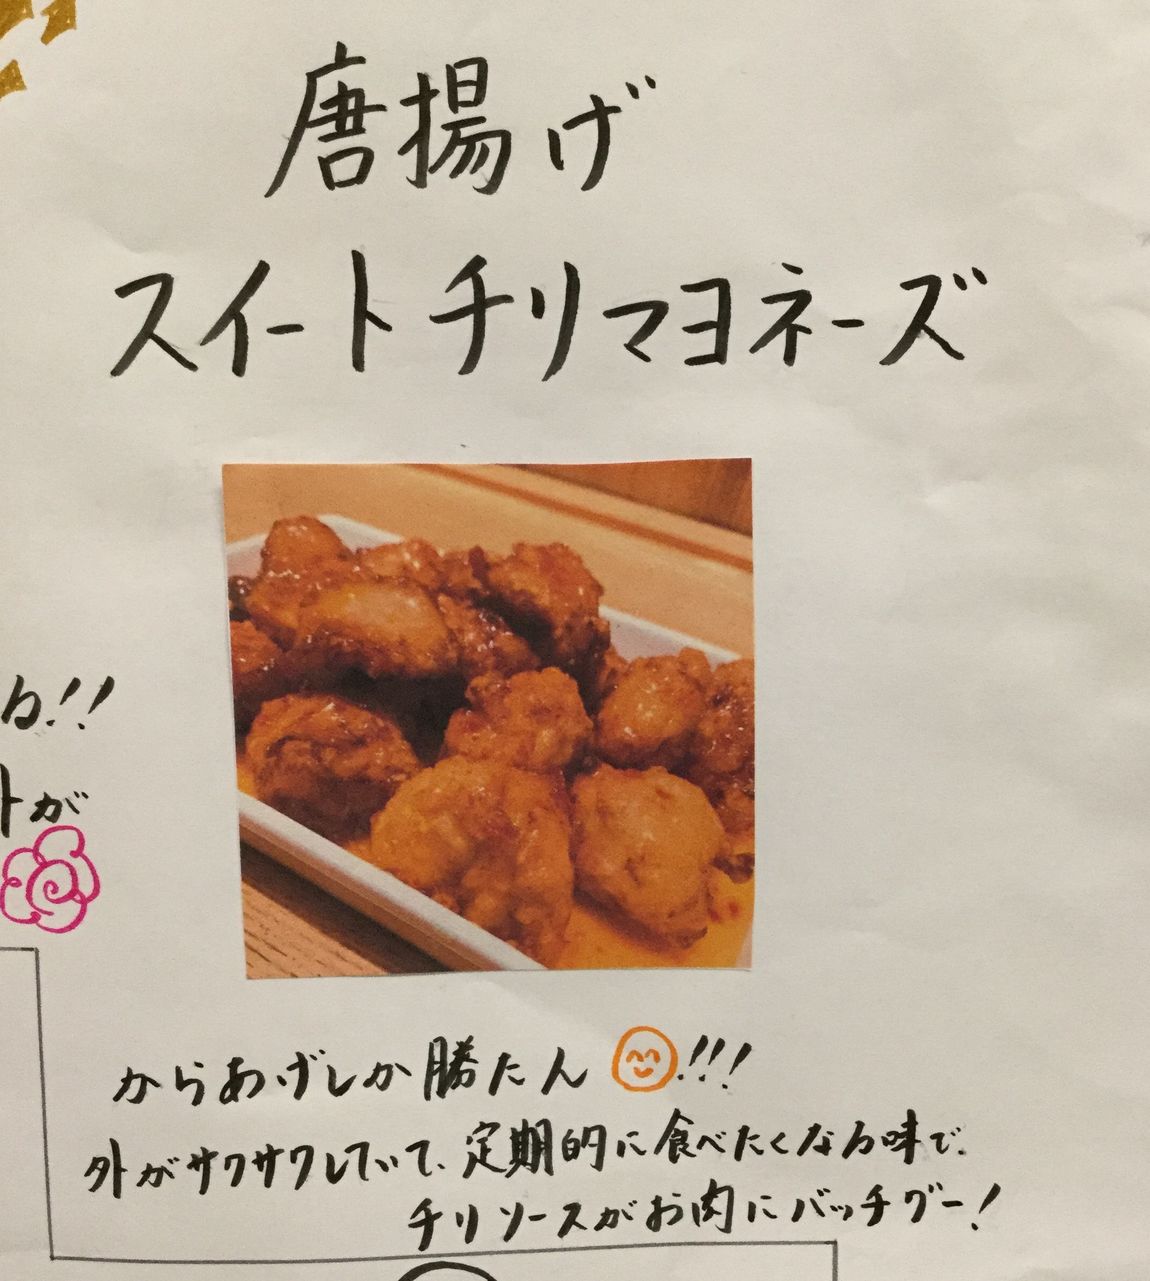 唐揚げ
スイートチリマヨネーズ
る!!
トが
からあげしか勝たん!!!
外がサクサクしていて、定期的に食べたくなる味で、
チリソースがお肉にバッチグー!